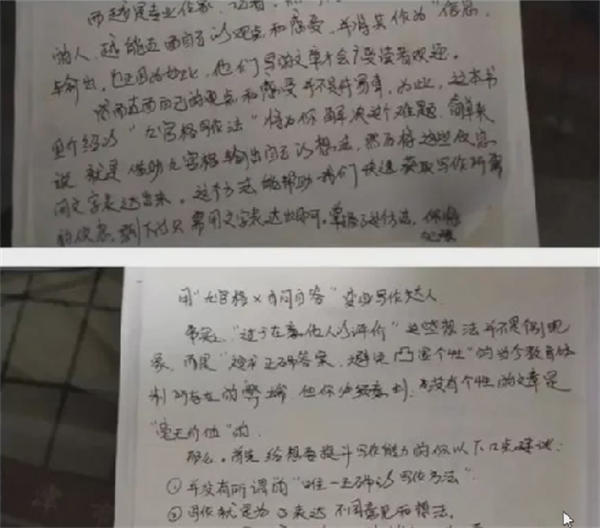 而越是专业作家、记者，
的人，越能直面自己的观点和感受，并将其作为“信息
与输出，也正因为如此，他们写的文章才会广受读者欢迎。
然而直面自己的观点和感受并不是件易事，为此，这本书
里介绍的“九宫格写作法”将为你解决这个难题，简单来
说，就是借助九宫格输出自己的想法，然后将这些信息
用文字表达出来。这个方法能帮助我们快速获取写作所需
的信息，剩下的只需用文字表达出即可。掌握了这个方法，你将
用“九宫格×自问自答”变身写作达人
事实上“过于在意他人的评价”这些想法并不是个别现
象，而是“追求正确答案，避免凸显个性”的当今教育体
制所存在的弊端，但你必须意识到，没有个性的文章是
“毫无价值”的。
那么，首先给想要提升写作能力的你以下几点建议：
①并没有所谓的“唯一正确的写作方法”
②写作就是为了表达不同意见和想法。